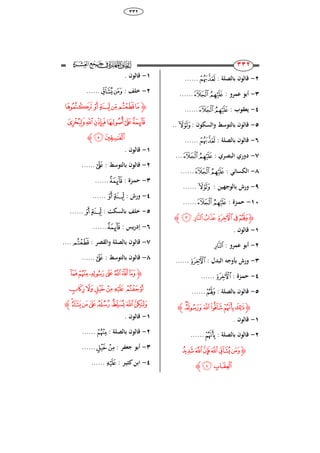 ٣٣٢
٣٣٢
٢- قالون بالصلة : ......
٣- أبو عمرو : عَلَيْهِمِ الْجَلَآءَ ......
٤- يعقوب : عَلَيْهُمُ الْجَلَآءَ ......
٥- قالون بالتوسط والسكون :
٦- قالون بالصلة : ......
٧- دوري البصري : عَلَيْهِمِ الْجَلَآءَ ...
٨- الكسائي : عَلَيْهُمُ الْجَلَآءَ ......
٩- ورش بالوجهين : ......
١٠- حمزة : عَلَيْهُمُ الْجَلَآءَ ......
﴿ فِي الْآخِرَةِ عَذَابُ النَّارِ ٣ ﴾
١- قالون .
٢- أبو عمرو : النَّارِ
٣- ورش بأوجه البدل : الْآخِرَةِ ......
٤- حمزة : الْآخِرَةِ ......
٥- قالون بالصلة : وَلَهُمْ ......
﴿ ذَٰلِكَ بِأَنَّهُمْ شَاقُّوا اللَّهَ وَرَسُولَهُ ﴾
١- قالون .
٢- قالون بالصلة : بِأَنَّهُمْ ......
﴿ وَمَن يُشَاقِّ اللَّهَ فَإِنَّ اللَّهَ شَدِيدُ
الْعِقَابِ ٤ ﴾
١- قالون .
٢- خلف : وَمَن يُشَاقِّ ......
﴿ مَا قَطَعْتُم مِّن لِّينَةٍ أَوْ تَرَكْتُمُوهَا
قَآئِمَةً عَلَىٰ أُصُولِهَا فَبِإِذْنِ اللَّهِ وَلِيُخْزِيَ
الْفَاسِقِينَ ٥ ﴾
١- قالون .
٢- قالون بالتوسط : ......
٣- حمزة : قَآئِمَةً ......
٤- ورش : لِّينَةٍ أَوْ ......
٥- خلف بالسكت : لِّينَةٍ أَوْ ......
٦- إدريس : قَآئِمَةً ......
٧- قالون بالصلة والقصر : قَطَعْتُم ....
٨- قالون بالتوسط : ......
﴿ وَمَآ أَفَآءَ اللَّهُ عَلَىٰ رَسُولِهِ مِنْهُمْ فَمَآ
أَوْجَفْتُمْ عَلَيْهِ مِنْ خَيْلٍ وَلَا رِكَابٍ
وَلَٰكِنَّ اللَّهَ يُسَلِّطُ رُسُلَهُ عَلَىٰ مَن يَشَآءُ ﴾
١- قالون .
٢- قالون بالصلة : مِنْهُمْ ......
٣- أبو جعفر : مِنْ خَيْلٍ ......
٤- ابن كثير : عَلَيْهِ ......